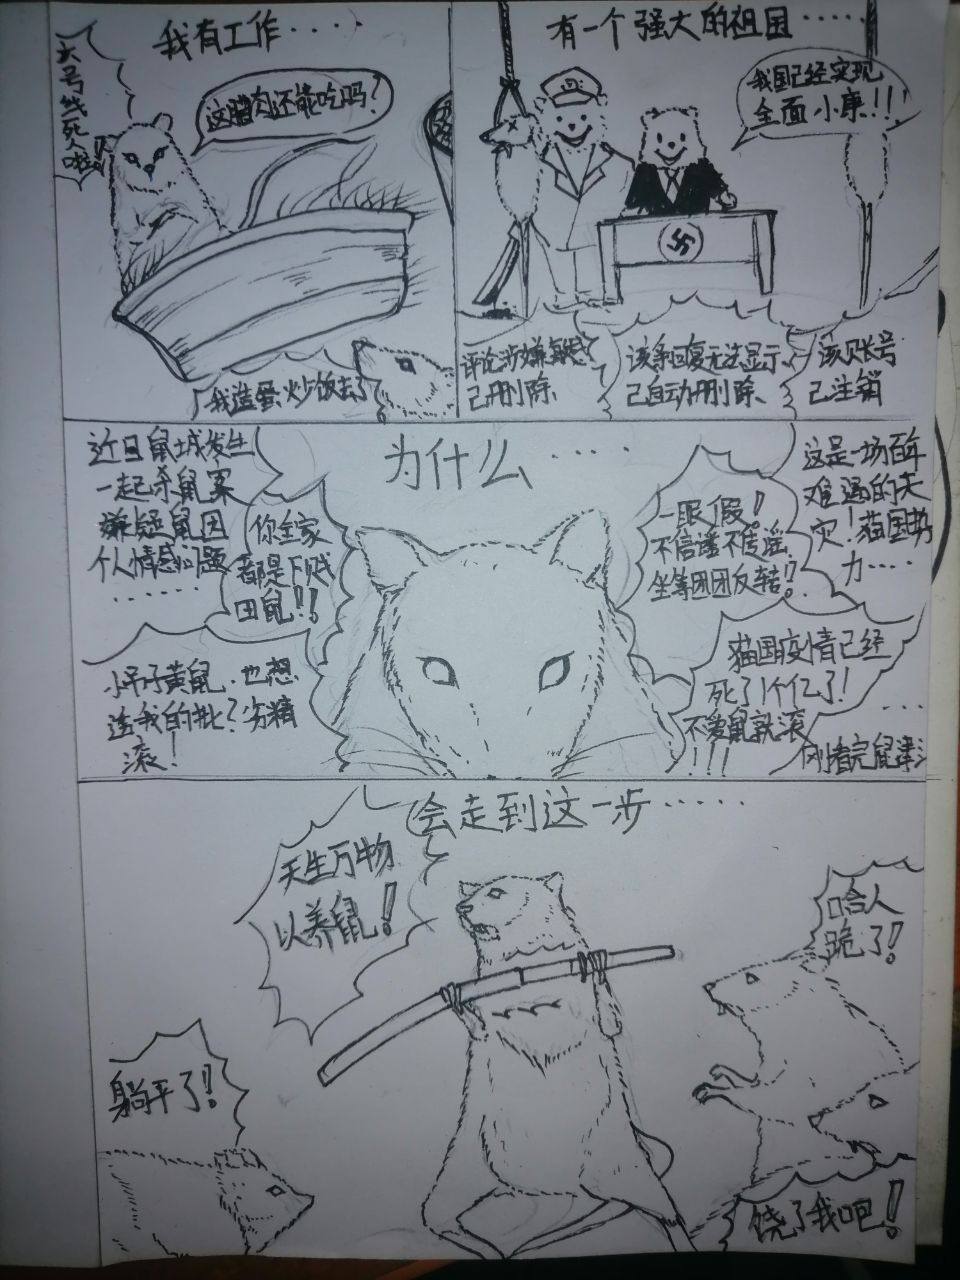 我有工作····
大号线死人啦
这腊肉还能吃吗?
我造蛋炒饭去了
有一个强大的祖国·····
我国已经实现
全面小康!!!
评论涉嫌敏感
已删除
该条回复无法显示
已自动删除、
该账号
已注销
为什么·····
近日鼠城发生
一起杀鼠案
嫌疑鼠因
个人情感问题
······
你全家
都是下贱
田鼠!!
小吊子黄鼠、也想
连我的批?劣精
滚!
一眼假!
不信谣不传谣
坐等团团反转!?
这是一场百年
难遇的天
灾!猫国势
力····
猫国疫情已经
死了1个亿了!
不爱鼠就滚
!!!
····
刚看完鼠津
会走到这一步·····
天生万物
以养鼠!
哈人
跪了!
躺平了!
饶了我吧!